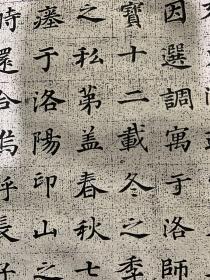 因選調寓于洛師
寶十二載冬之季
之私第益春秋七
瘞于洛陽印山之
還合烏乎長